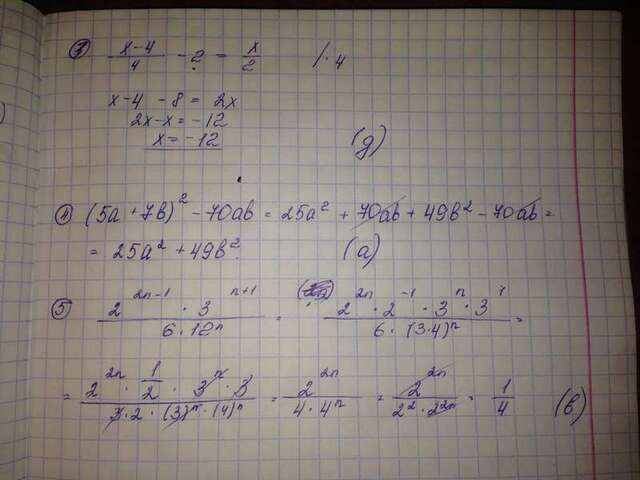 ③ (x-4)/4 - 2 = x/2 /·4
x-4-8=2x
2x-x=-12
x=-12
(g)
④ (5a+7b)² - 70ab = 25a² + 70ab + 49b² - 70ab =
= 25a² + 49b²
(a)
⑤ (2^(2n-1) · 3^(n+1))/(6·12ⁿ) = (2^(2n) · 2^(-1) · 3ⁿ · 3¹)/(6·(3·4)ⁿ) =
= (2^(2n) · 1/2 · 3ⁿ · 3)/(3·2·(3)ⁿ·(4)ⁿ) = 2^(2n)/(4·4ⁿ) = 2^(2n)/(2²·2^(2n)) = 1/4
(b)